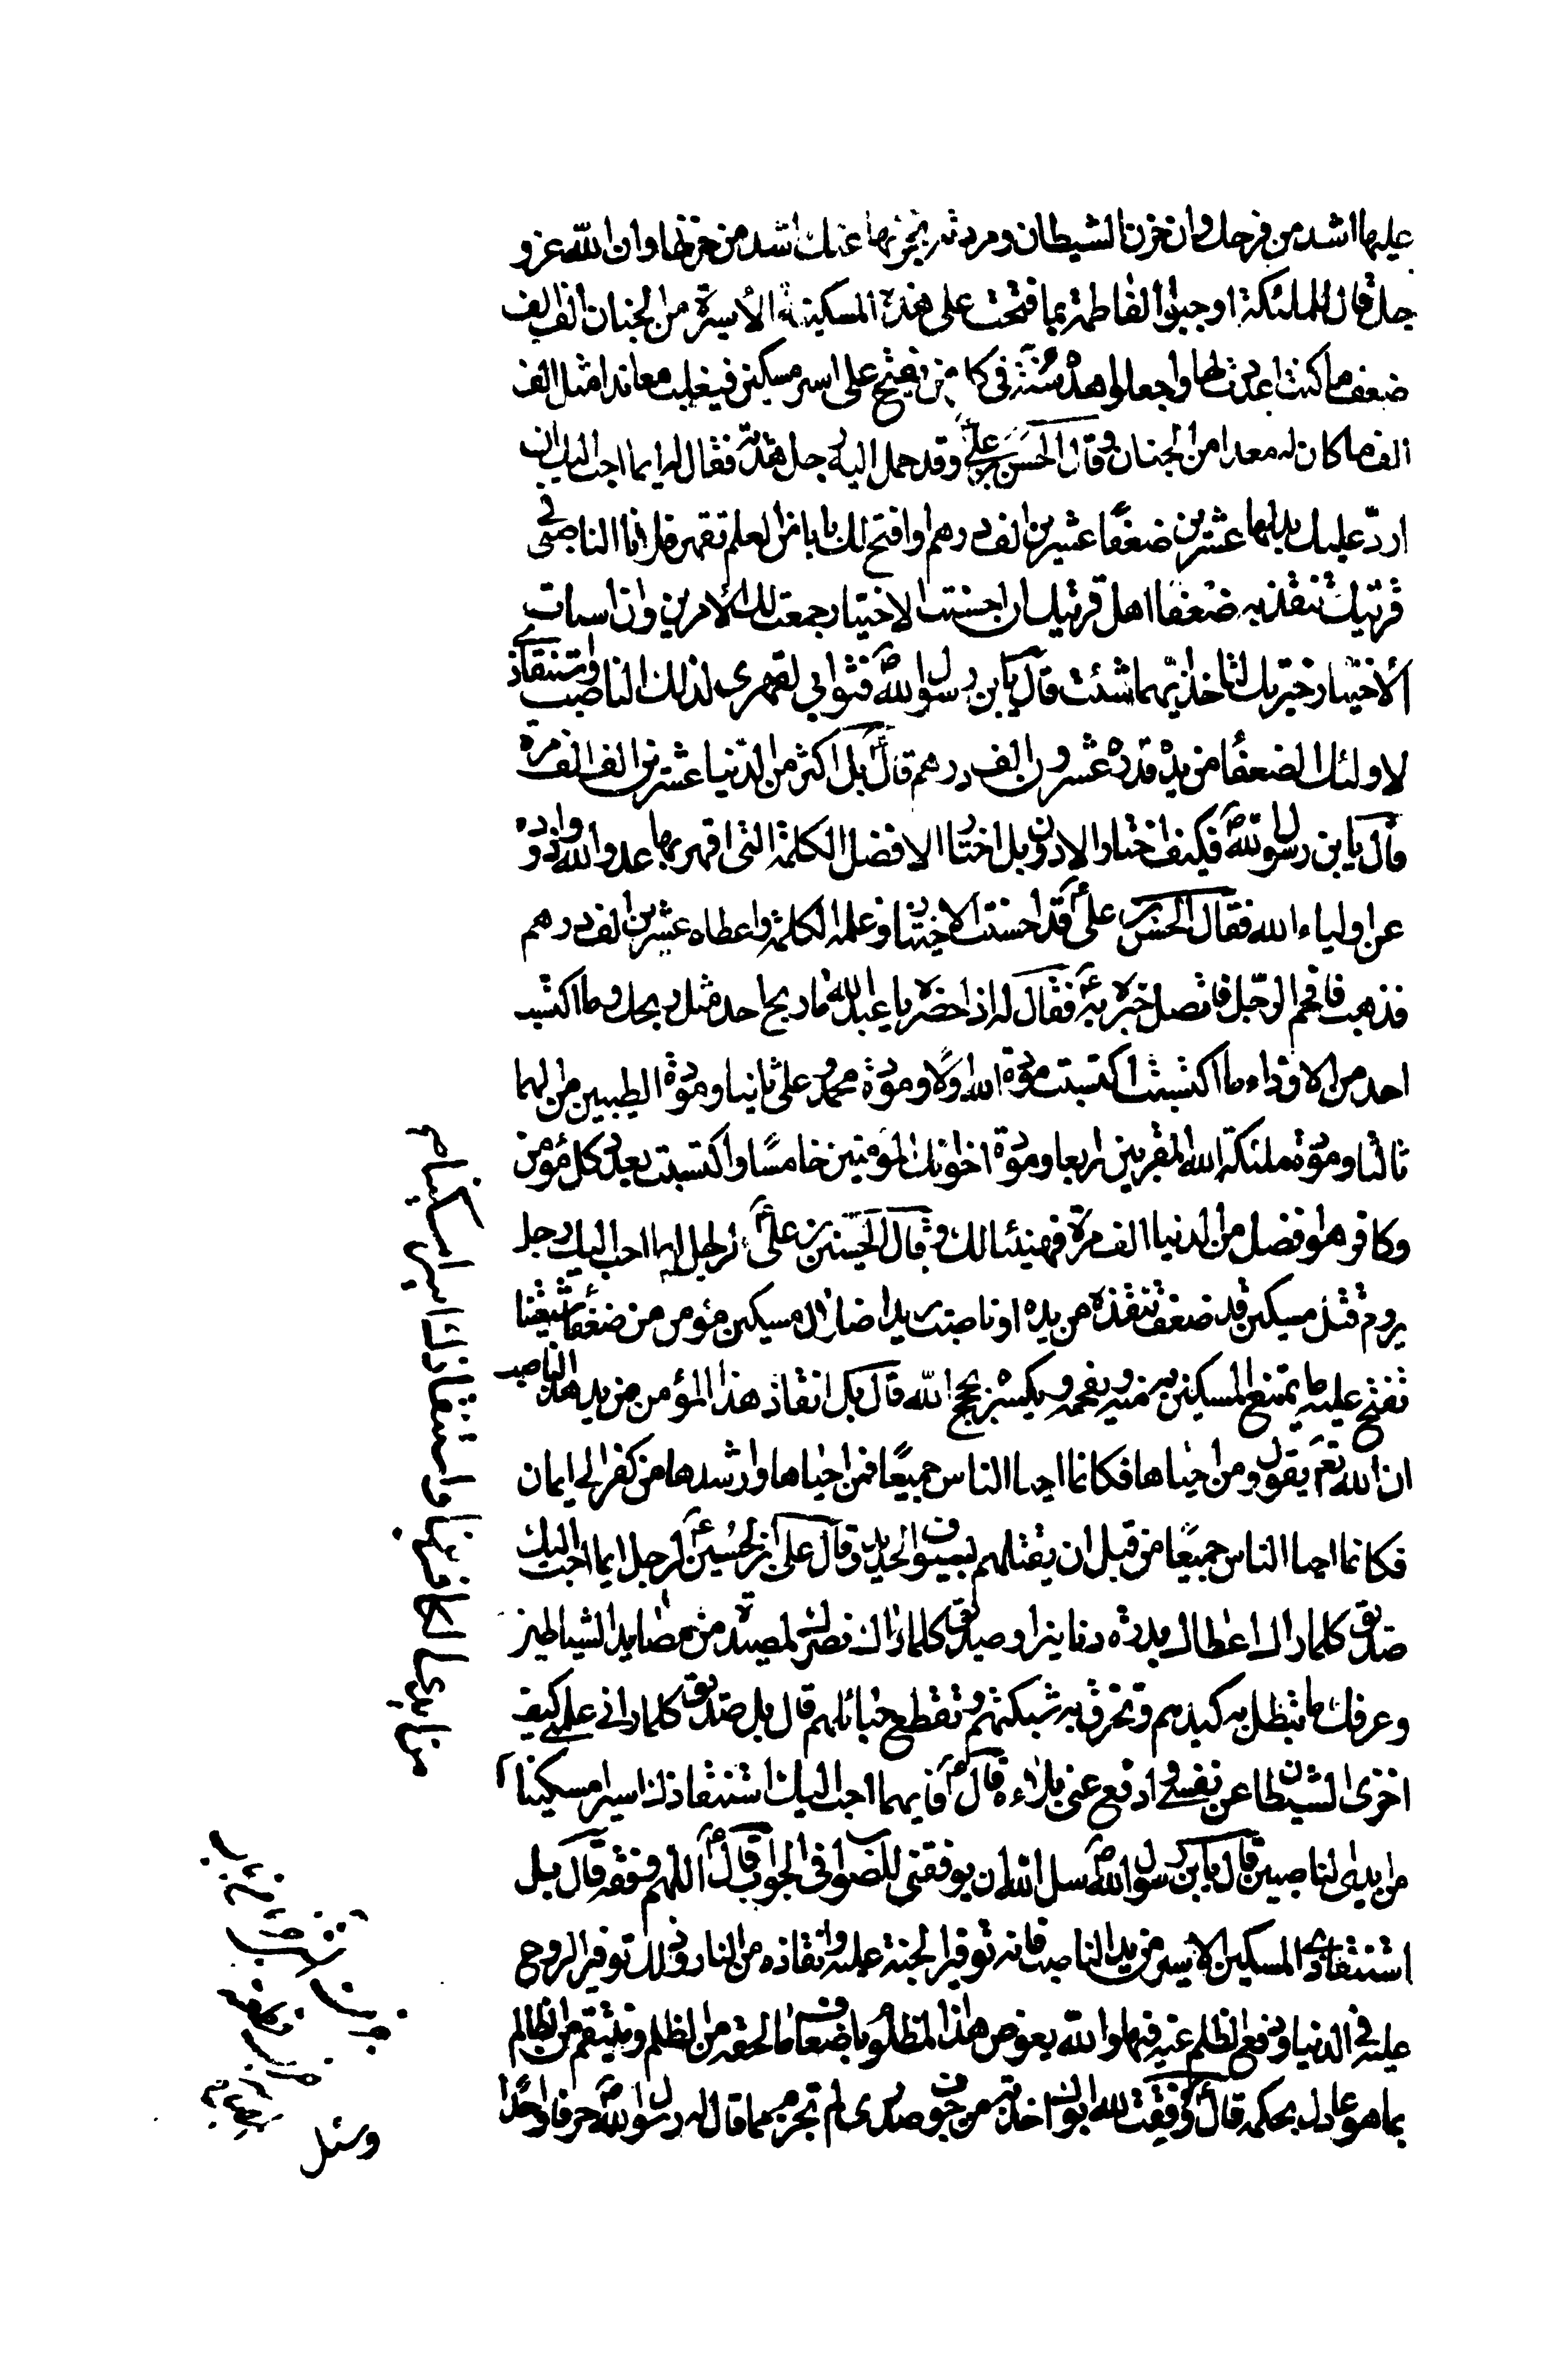 عليها اشد من فرحك وان حزن الشيطان ومردته بحزنها عنك اشد من حزنها وان الله عز و
جل قال للملئكة اوجبوا لفاطمة بما فتحت على هذه المسكينة الاسيرة من الجنان الف الف
ضعف ما كنت اعددت لها واجعلوا هذه سنة في كل من يفتح على اسير مسكين فيغلب معاندا مثل الف
الف ما كان له معدا من الجنان وقال الحسن بن علي وقد حمل اليه رجل هدية فقال له ايما احب اليك ان
اردّ عليك بدلها عشرين ضعفًا عشرين الف درهم او افتح لك بابا من العلم تقهر فلانا الناصبي في
قريتك تنقذ به ضعفا اهل قريتك ان احسنت الاختيار جمعت لك الامرين وان اسات
الاختيار خيرتك لتاخذ ايهما شئت قال يابن رسول الله ص فثوابي لقهري لذلك الناصب واستنقاذي
لاولئك الضعفا من يده قدره عشرون الف درهم قال بل اكثر من الدنيا عشرين الف الف مرة
قال يابن رسول الله ص فكيف اختار الادون بل اختار الافضل الكلمة التي اقهر بها عدو الله واذوده
عن اولياء الله فقال الحسن بن علي ع قد احسنت الاختيار وعلمه الكلمة واعطاه عشرين الف درهم
فذهب فافحم الرجل فاتصل خبره به ع فقال له اذ حضره يا عبد الله ما ربح احد مثل ربحك وما اكتسب
احد من الاوداء ما اكتسبت اكتسبت مودة الله اولًا ومودة محمد وعلي ثانيا ومودة الطيبين من الهما
ثالثا ومودة ملئكة الله المقربين اربعا ومودة اخوانك المؤمنين خامسًا واكتسبت بعدد كل مؤمن
وكافر هو افضل من الدنيا الف مرة فهنيئا لك وقال الحسين بن علي ع لرجل ايهما احب اليك رجل
يروم قتل مسكين قد ضعف تنقذه من يده او ناصب يريد اضلال مسكين مؤمن من ضعفا شيعتنا
تفتح عليه ما يمتنع المسكين به منه ويفحمه ويكسره بحجج الله قال بل انقاذ هذا المؤمن من يد هذا الناصب
ان الله تع يقول ومن احياها فكانما احيا الناس جميعًا فمن احياها وارشدها من كفر الى ايمان
فكانما احيا الناس جميعًا من قبل ان يقتلهم بسيوف الحديد وقال علي بن الحسين ع لرجل ايما احب اليك
صديق كلما راك اعطاك بدرة دنانير او صديق كلما راك نصرك لمصيدة من مصايد الشياطين
وعرفك ما تبطل به كيدهم وتخرق به شبكتهم وتقطع حبائلهم قال بل صديق كلما راني علمني كيف
اخزى الشيطان عن نفسي وادفع عني بلاءه قال ع فايهما احب اليك استنقاذك اسيرا مسكينا
من ايدي الناصبين قال يابن رسول الله ص سل الله ان يوفقني للصواب في الجواب قال ع اللهم وفقه قال بل
استنقاذي المسكين الاسير من يد الناصب فانه توفير الجنة عليه وانقاذه من النار وذلك توفير الروح
عليه في الدنيا ودفع الظلم عنه فيها والله يعوض هذا المظلوم باضعاف ما لحقه من الظلم وينتقم من الظالم
بما هو عادل بحكمه قال ع وفقت لله ابوك اخذته من جوف صدري لم تجزم مما قاله رسول الله ص حرفا واحدًا
وسئل
من ايدي الكافرين او استنقاذك اسيرا مسكينا